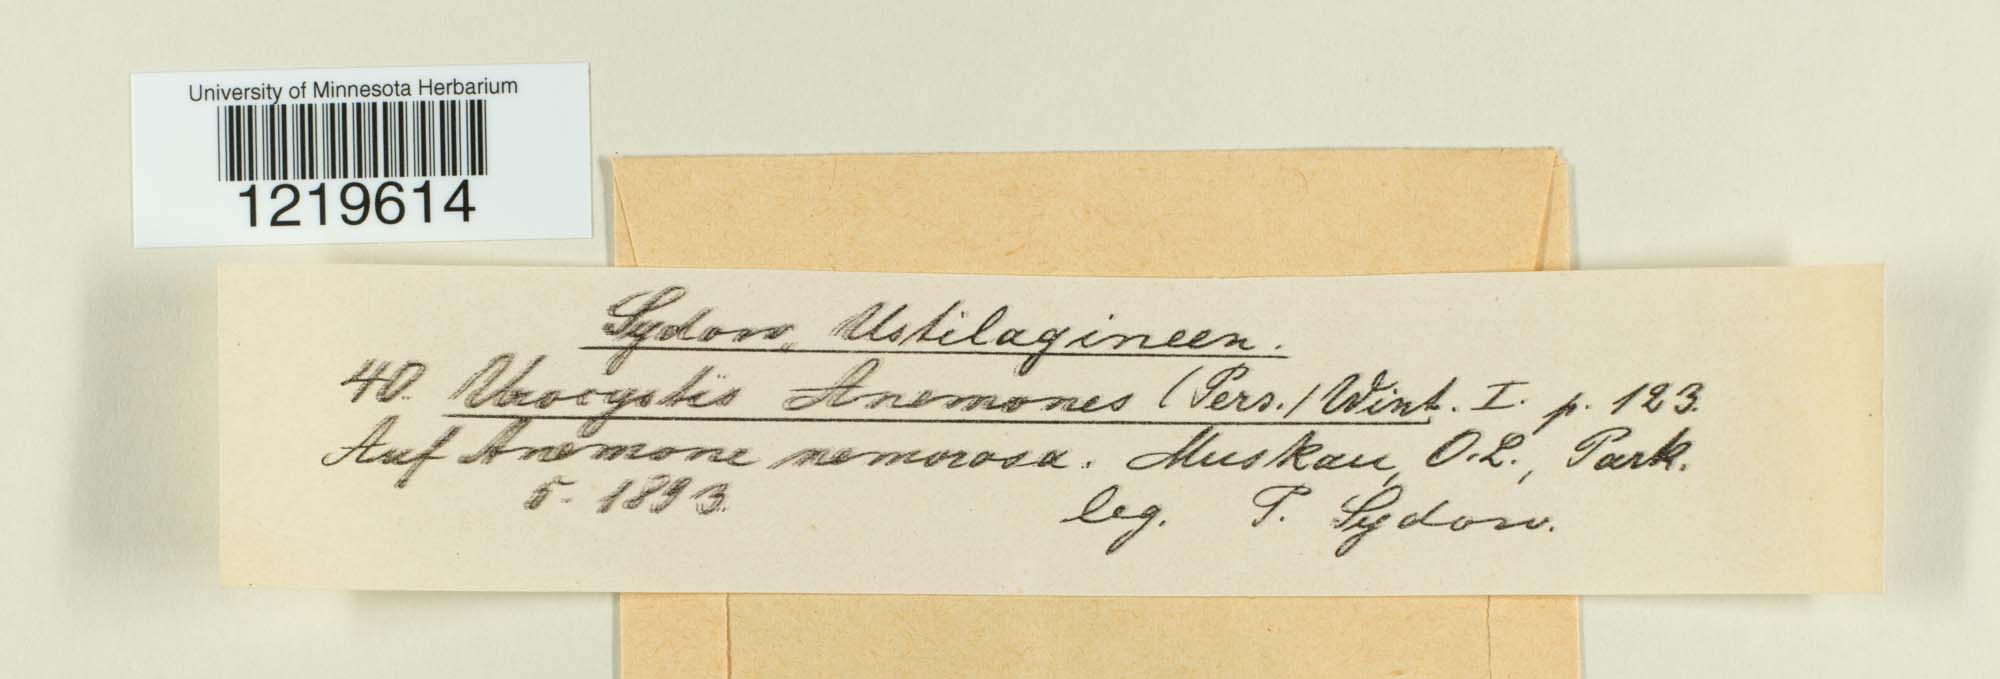 University of Minnesota Herbarium
1219614
Sydow, Ustilagineen.
40. Urocystis Anemones (Pers.) Wint. I. p. 123.
Auf Anemone nemorosa. Muskau, O.L., Park.
5. 1893. leg. P. Sydow.